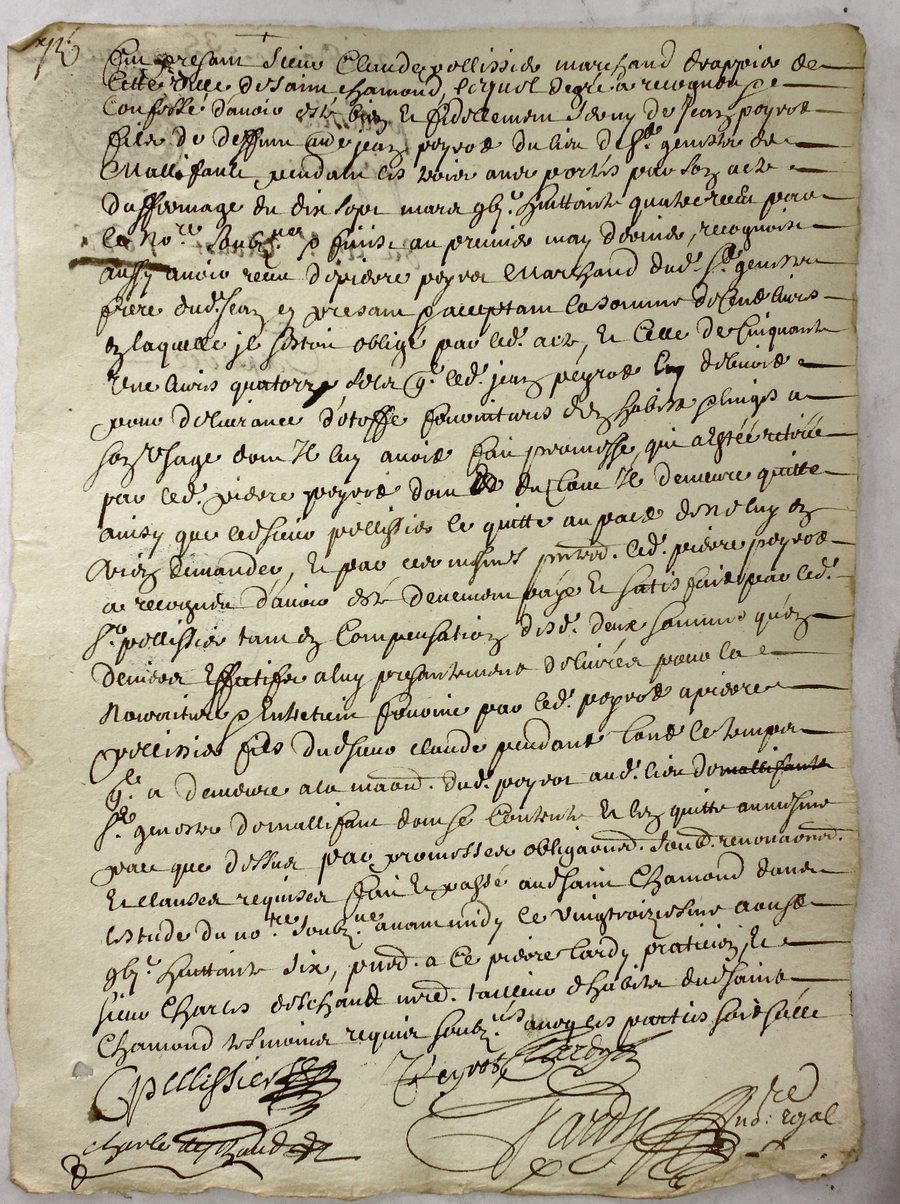 Fut presant sieur Claude pellissier marchand drappier de
cette ville de saint chamond, lequel de gré a recogneu &
Confessé d'avoir esté bien et fidellement servy de jean peyrot
fils de deffunt jean peyrot du lieu de st. genestz de
Mallifault pendant les trois ans portés par son acte
daffermage du dix sept mars gbjc. huittante quatre receu par
le nore. soubz.né & finis au premier may dernier, recognoist
aussy avoir receu de pierre peyrot Marchand dud. st. genestz
frere dud. jean en presant & acceptant la somme de cent livres
en laquelle jl s'estoit obligé par led. acte, et celle de Cinquante
une livres quatorze solz q. led. jean peyrot luy debvoit
pour delivrance d'etoffe fournitures des habitz & linges a
son usage dont Il luy avoit fait promesse, qui a esté retirée
par led. pierre peyrot dont du tout Il demeure quitte
ainsy que led sieur pellissier le quitte au pact de ne luy en
rien demander, et par ces mesmes led. pierre peyrot
a recogneu d'avoir esté deuement payé et satisfait par led.
sr. pellissier tant en Compensation desd. deux sommes qu'en
deniers Effectifs a luy presantement delivrés pour la
nourriture & Entretien fournie par led. peyrot a pierre
pellissier fils dud sieur claude pendant tout le temps
ql. a demeuré a la maond. dud. peyrot aud. lieu de mallifault
st. genestz de mallifaut dont se Contente et len quitte au mesme
pact que dessus par promesses obligaonds. renonaonds.
et clauses requises fait et passé aud saint Chamond dans
lestude du notre. soubz.né avant midy le vingt troiziesme aoust
gbjc. huittante six, pnd. a ce pierre tardy praticien, et
sieur Charles deschaud tailleur dhabits dud saint
Chamond tesmoins requis soubz.nés avec les parties
CPellissier
Peyrot
Tardy
Charle deschaud
Tardy
nore. royal